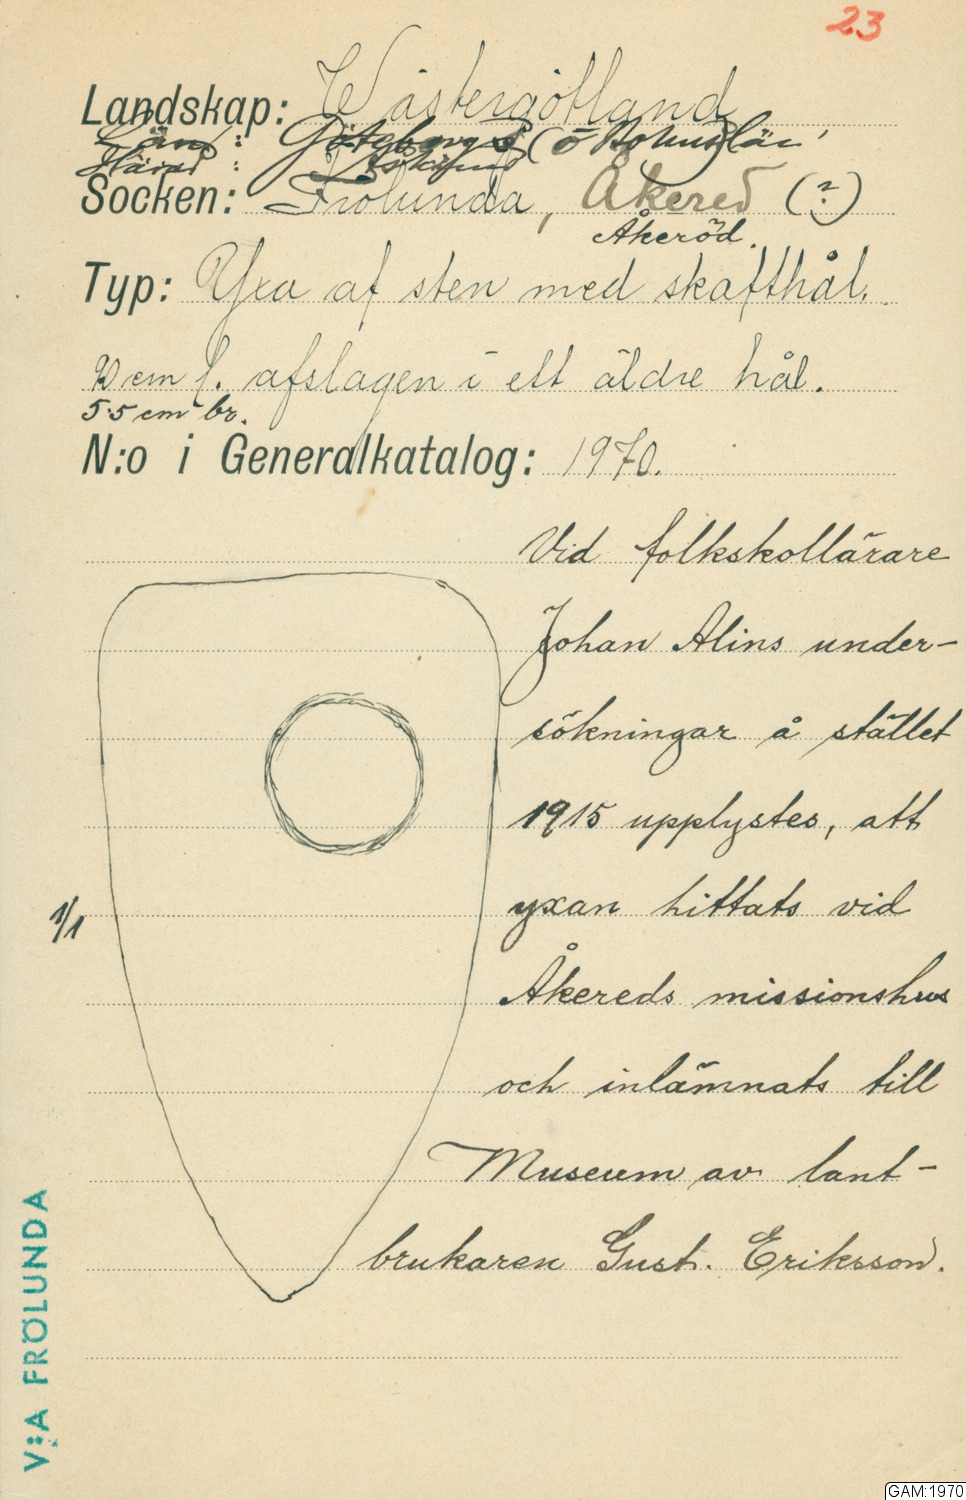 23
Landskap: Västergötland
Län: Göteborgs (o Bohus) län
Härad: Askims
Socken: Frölunda, Åkered (?)
Åkeröd.
Typ: Yxa af sten med skafthål.
cm l. afslagen i ett äldre hål.
5.5 cm br.
N:o i Generalkatalog: 1970.
Vid folkskollärare
Johan Alins under-
sökningar å stället
1915 upplystes, att
yxan hittats vid
1/1
Åkereds missionshus
och inlämnats till
Museum av lant-
brukaren Gust. Eriksson.
V:A FRÖLUNDA
GAM:1970